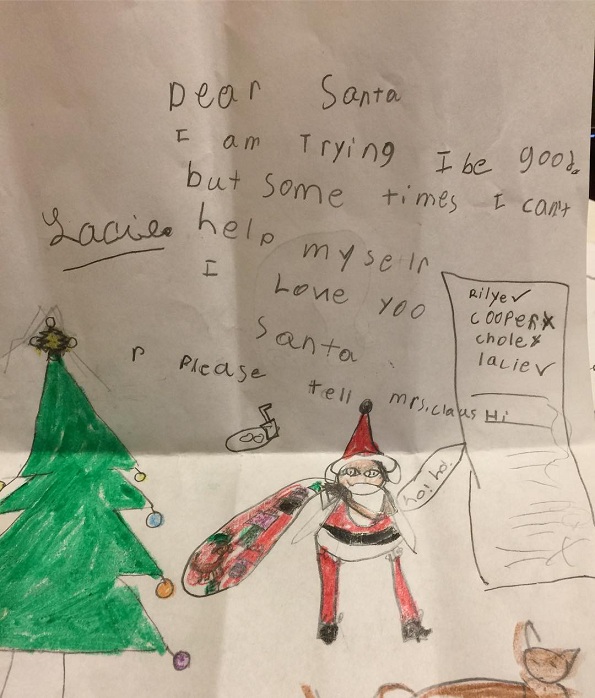 Dear Santa
I am Trying I be good.
but some times I can't
help myself
Lacie
I Love YOO
Santa
P Please
tell mrs.claus Hi
Rilye✓
COOPER✗
chole✗
lacie✓
ho! ho!